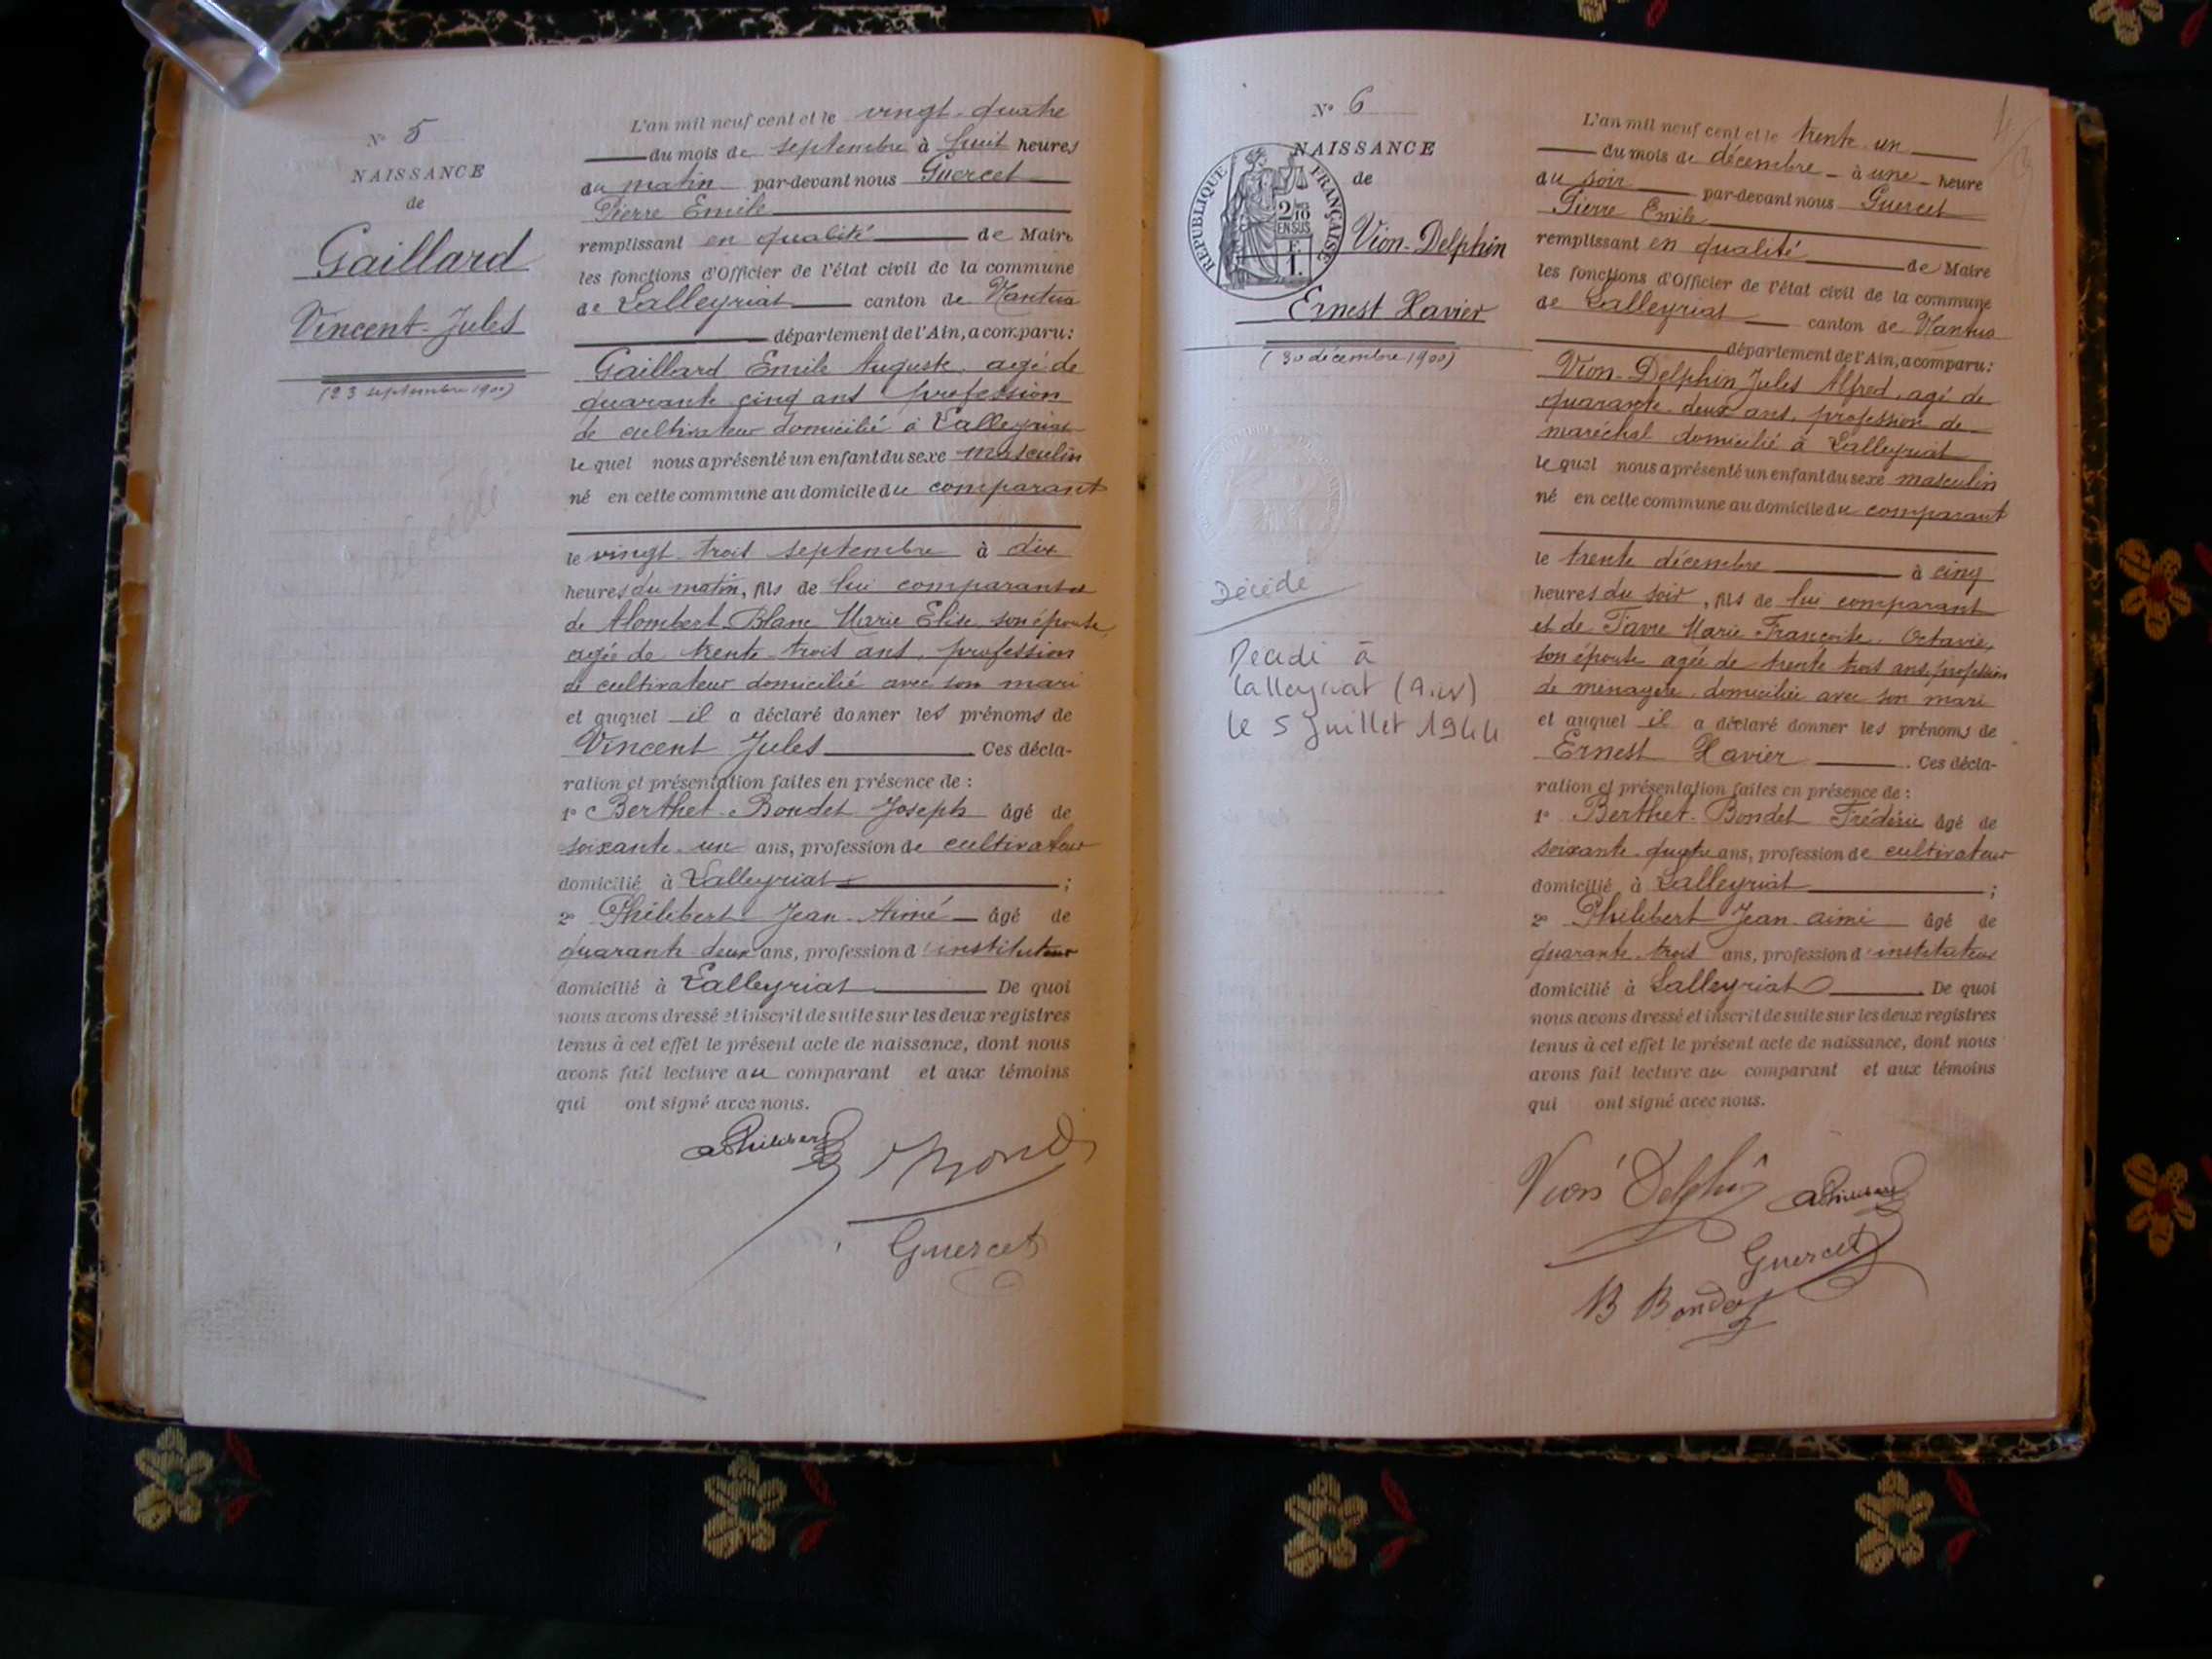 N° 5
NAISSANCE
de
Gaillard
Vincent-Jules
(23 septembre 1900)
décédé
L'an mil neuf cent et le vingt-quatre
du mois de septembre à huit heures
du matin par-devant nous Guercet
Pierre Emile
remplissant en qualité de Maire
les fonctions d'Officier de l'état civil de la commune
de Lalleyriat canton de Nantua
département de l'Ain, a comparu:
Gaillard Emile Auguste, agé de
quarante cinq ans profession
de cultivateur domicilié à Lalleyriat
le quel nous a présenté un enfant du sexe masculin
né en cette commune au domicile du comparant
le vingt-trois septembre à dix
heures du matin, fils de lui comparant et
de Alombert-Blanc Marie Elise, son épouse,
agée de trente-trois ans, profession
de cultivateur domicilié avec son mari
et auquel il a déclaré donner les prénoms de
Vincent Jules Ces décla-
ration et présentation faites en présence de :
1° Berthet-Bondet Joseph âgé de
soixante-un ans, profession de cultivateur
domicilié à Lalleyriat ;
2° Philibert Jean-Aimé âgé de
quarante deux ans, profession d'instituteur
domicilié à Lalleyriat De quoi
nous avons dressé et inscrit de suite sur les deux registres
tenus à cet effet le présent acte de naissance, dont nous
avons fait lecture au comparant et aux témoins
qui ont signé avec nous.
aPhilibert
Guercet
N° 6
NAISSANCE
de
RÉPUBLIQUE FRANÇAISE
2/10
EN SUS
F.
1.
Vion-Delphin
Ernest Xavier
(30 décembre 1900)
Décédé
Decédé à
Lalleyriat (Ain)
le 5 Juillet 1944
L'an mil neuf cent et le trente-un
du mois de décembre - à une heure
du soir par-devant nous Guercet
Pierre Emile
remplissant en qualité de Maire
les fonctions d'Officier de l'état civil de la commune
de Lalleyriat canton de Nantua
département de l'Ain, a comparu:
Vion-Delphin Jules Alfred, agé de
quarante-deux ans, profession de
maréchal domicilié à Lalleyriat
le quel nous a présenté un enfant du sexe masculin
né en cette commune au domicile du comparant
le trente décembre à cinq
heures du soir, fils de lui comparant
et de Favre Marie Françoise Octavie,
son épouse agée de trente trois ans, profession
de ménagère, domiciliée avec son mari
et auquel il a déclaré donner les prénoms de
Ernest Xavier. Ces décla-
ration et présentation faites en présence de :
1° Berthet-Bondet Frédéric âgé de
soixante-quatre ans, profession de cultivateur
domicilié à Lalleyriat ;
2° Philibert Jean-aimé âgé de
quarante-trois ans, profession d'instituteur
domicilié à Lalleyriat De quoi
nous avons dressé et inscrit de suite sur les deux registres
tenus à cet effet le présent acte de naissance, dont nous
avons fait lecture au comparant et aux témoins
qui ont signé avec nous.
Vion Delphin aPhilibert
Guercet
B Bondet